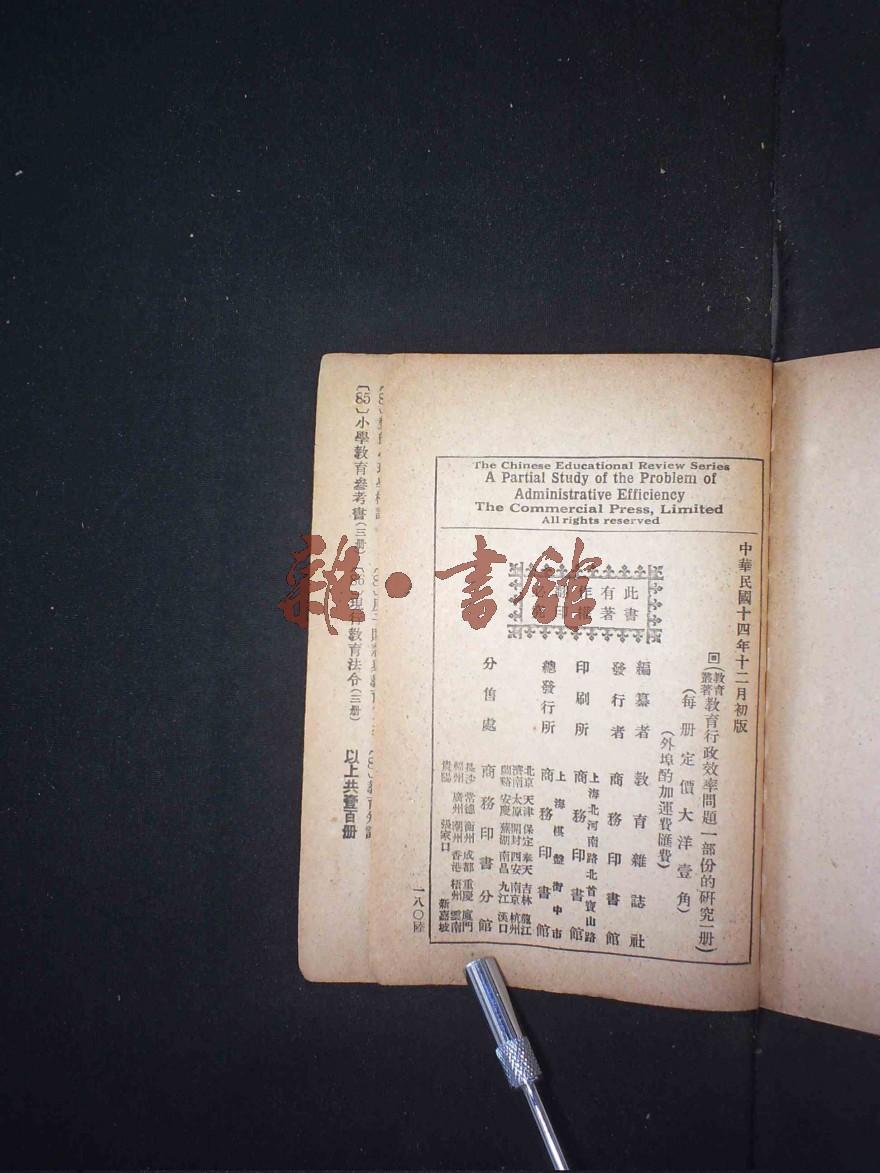 The Chinese Educational Review Series
A Partial Study of the Problem of
Administrative Efficiency
The Commercial Press, Limited
All rights reserved
中華民國十四年十二月初版
(教育叢著教育行政效率問題一部份的研究一册)
(每册定價大洋壹角)
(外埠酌加運費匯費)
此書
有著
作權
翻印
必究
編纂者 教育雜誌社
發行者 商務印書館
上海北河南路北首寶山路
印刷所 商務印書館
上海棋盤街中市
總發行所 商務印書館
北京 天津 保定 奉天 吉林 龍江
濟南 太原 開封 西安 南京 杭州
蘭谿 安慶 蕪湖 南昌 九江 漢口
分售處 商務印書分館
長沙 常德 衡州 成都 重慶 廈門
福州 廣州 潮州 香港 梧州 雲南
貴陽 張家口 新嘉坡
一八〇陸
〔85〕小學教育參考書(三册) 〔86〕現行教育法令(三册) 以上共壹百册
雜·書館